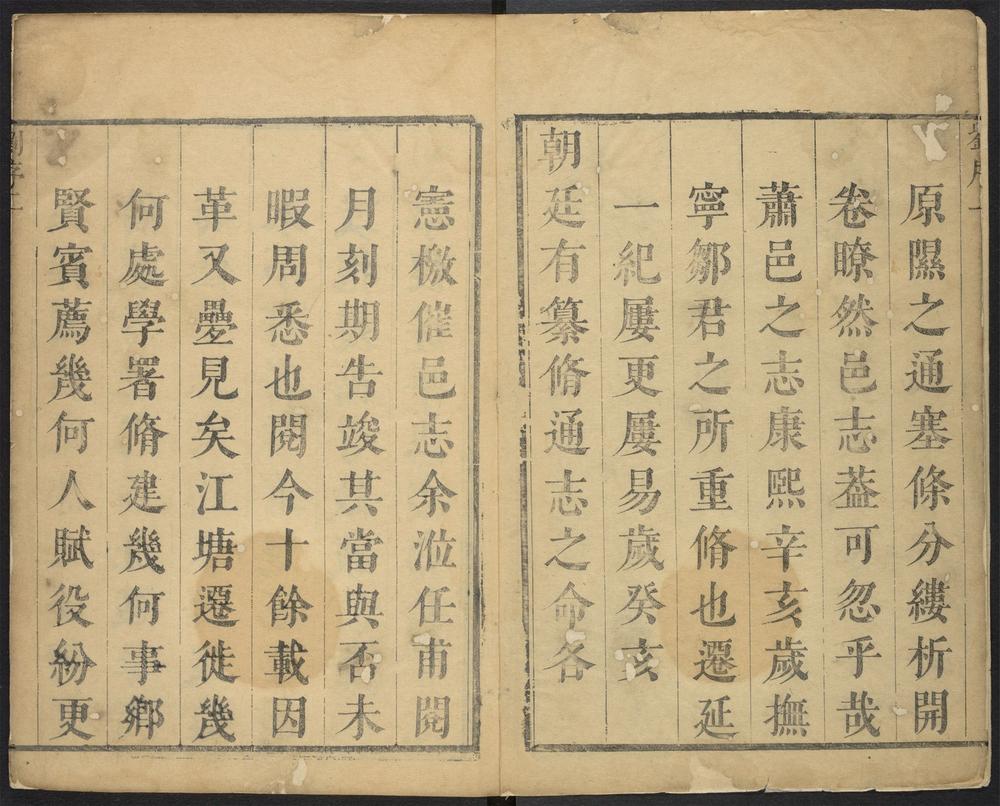 原隰之通塞條分縷析開
卷瞭然邑志葢可忽乎哉
蕭邑之志康熙辛亥歲撫
寧鄒君之所重脩也遷延
一紀屢更屢易歲癸亥
朝廷有纂脩通志之命各
憲檄催邑志余涖任甫閱
月刻期告竣其當與否未
暇周悉也閱今十餘載因
革又疊見矣江塘遷徙幾
何處學署脩建幾何事鄉
賢賓薦幾何人賦役紛更